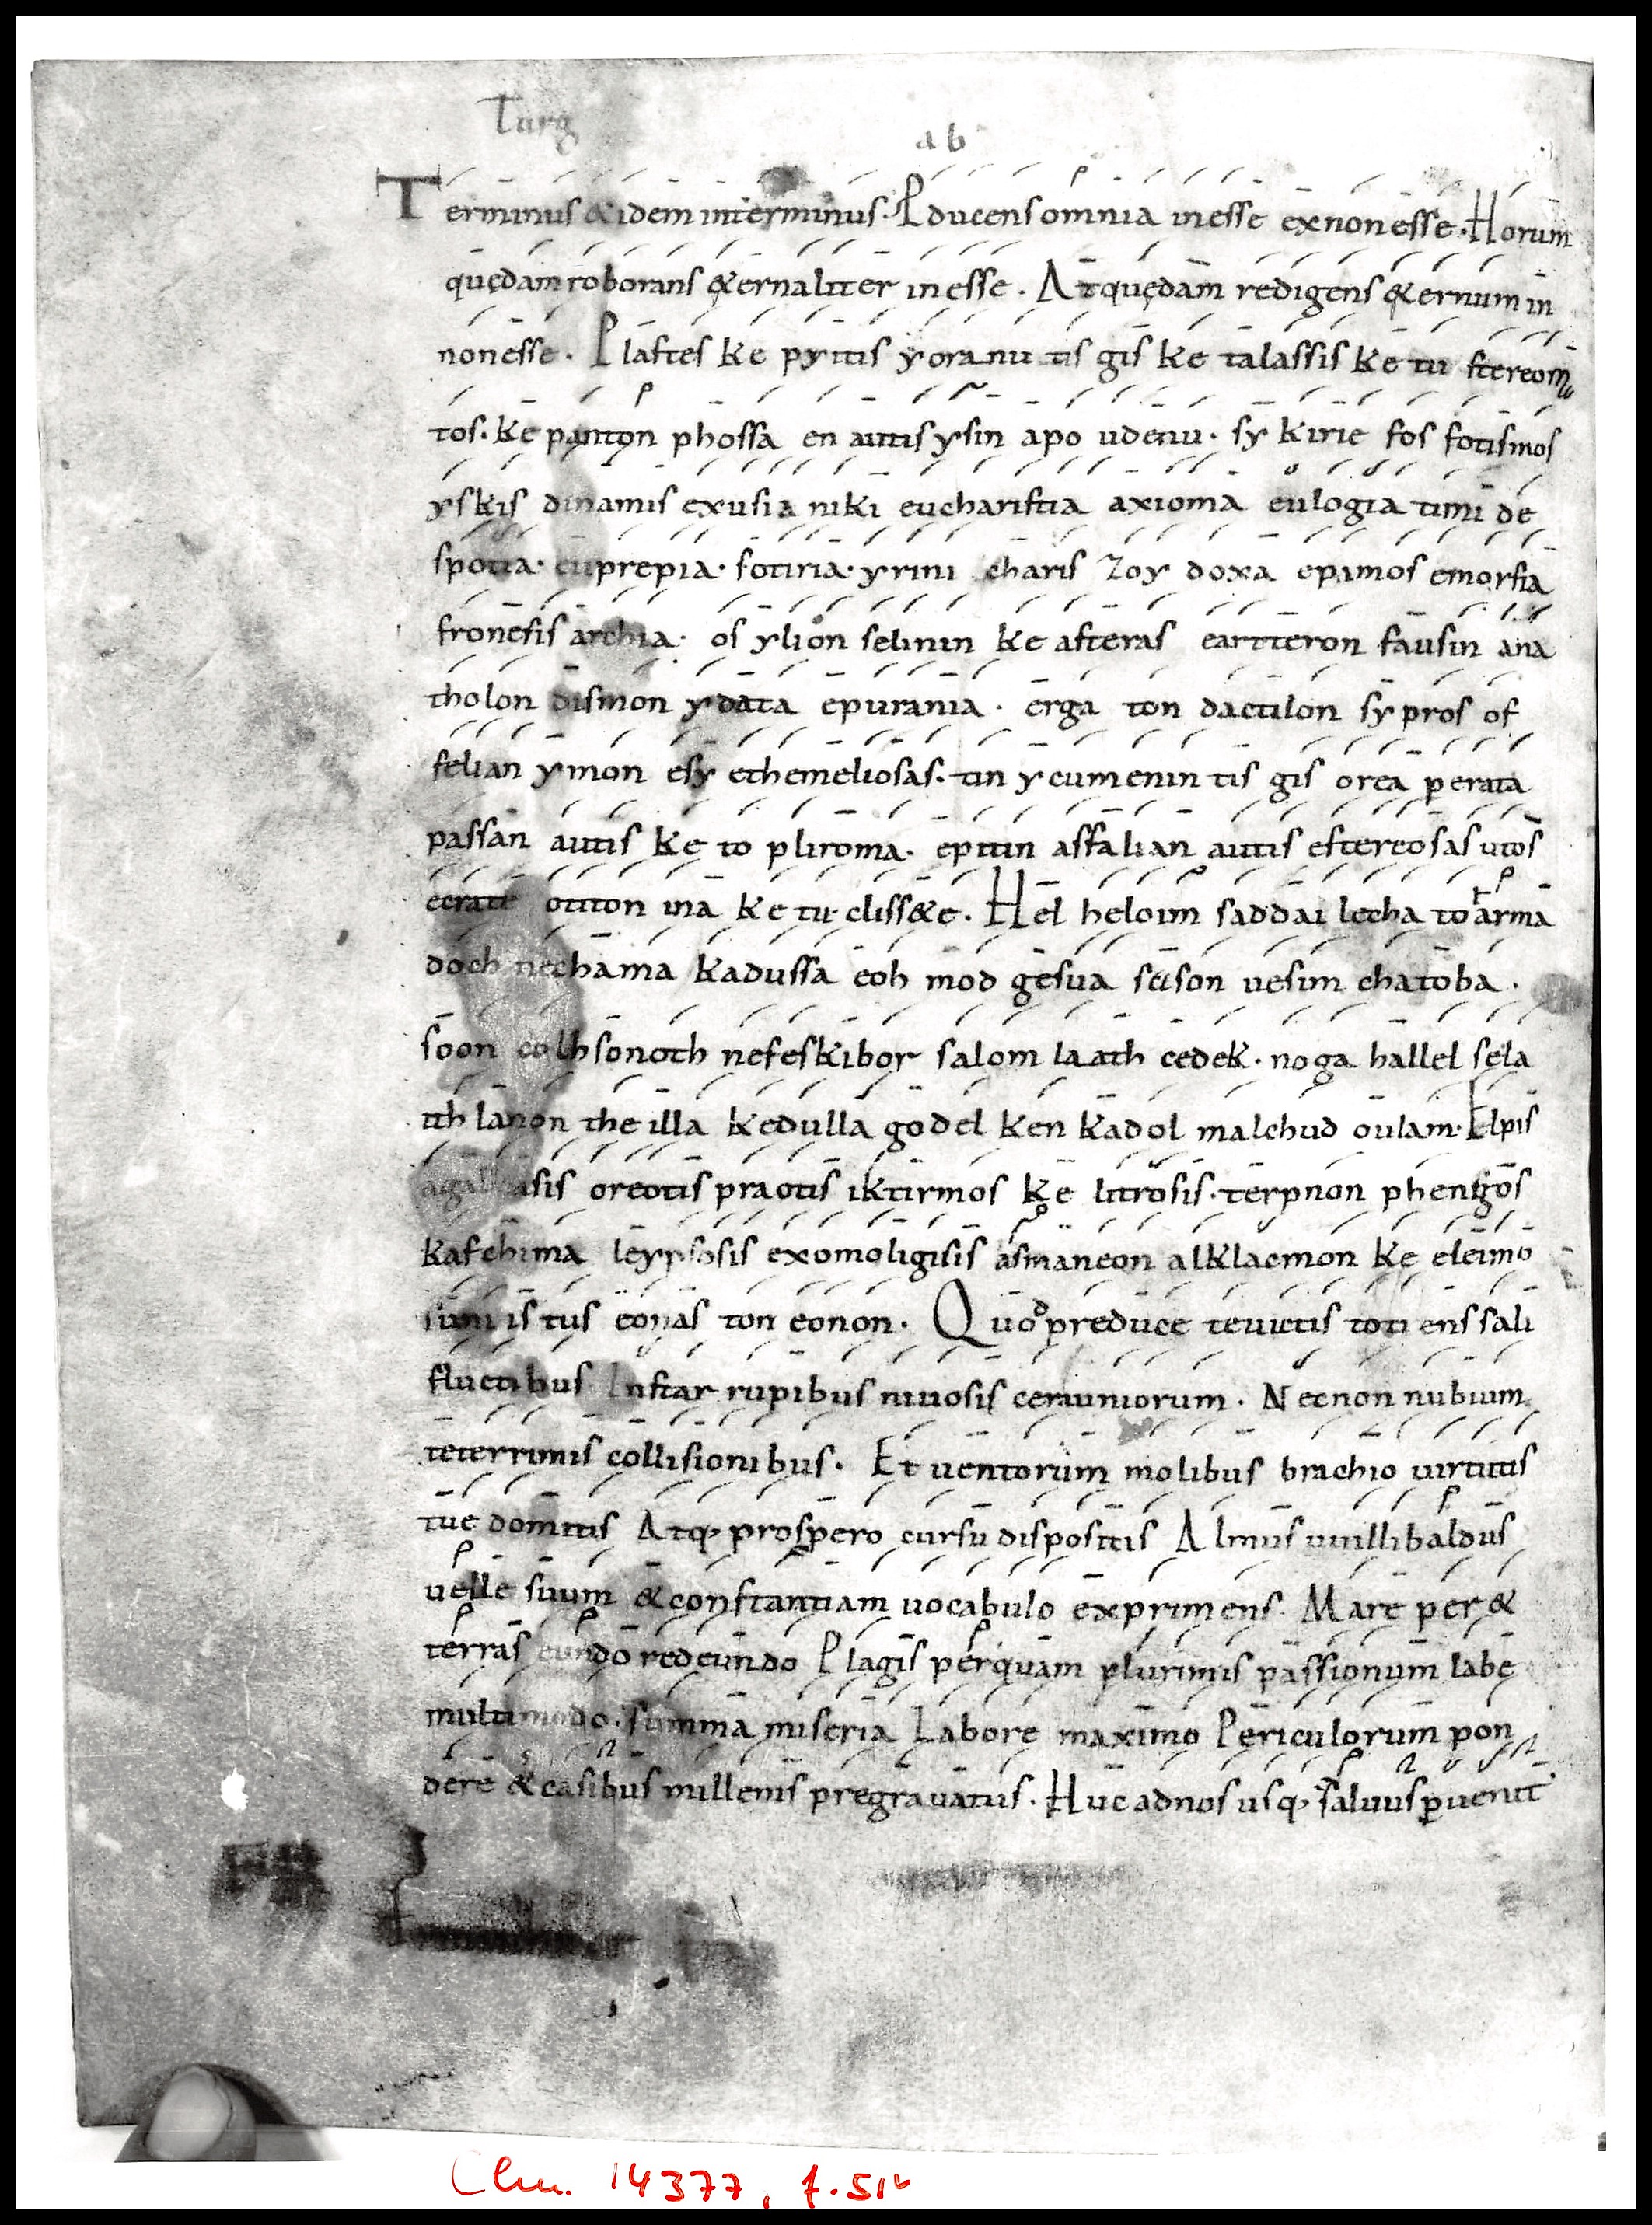 Turg
a b
Terminus & idem interminus. Pducens omnia in esse ex non esse. Horum
quędam roborans &ernaliter in esse. At quędam redigens &ernum in
non esse. Plastes ke pyitis yoranu tis gis ke talassis ke tu stereom
tos. ke panton phossa en autis ysin apo udenu. sy kirie fos fotismos
yskis dinamis exusia niki eucharistia axioma eulogia timi de
spotia. euprepia. sotiria. yrini charis zoy doxa epainos emorfia
fronesis archia. os ylion selinin ke asteras eartteron fausin ana
tholon dismon ydata epurania. erga ton dactilon sy pros of
felian ymon esy ethemeliosas. tin ycumenin tis gis orea perata
passan autis ke to pliroma. epitin asfalian autis estereosas utos
ecrate otiton ina ke tu cliss&e. Hel heloim saddai lecha to arma
doch nechama kadussa eoh mod gesua seison uesim chatoba.
soon colhsonoth nefeskibor salom laath cedek. noga hallel sela
ith lanon the illa kedulla godel ken kadol malchud oulam. Elpis
agalliasis oreotis praotis iktirmos ke litrosis. terpnon phengos
kafchima leypsosis exomoligisis asmaneon alklaemon ke eleimo
sini is tus eonas ton eonon. Quo preduce teuictis totiens sali
fluctibus Instar rupibus niuosis cerauniorum. Necnon nubium
teterrimis collisionibus. Et uentorum molibus brachio uirtutis
tue domitis Atq; prospero cursu dispositis Almus uuillibaldus
uelle suum & constantiam uocabulo exprimens. Mare per &
terras eundo redeundo Plagis perquam plurimis passionum labe
multimodo. summa miseria Labore maximo Periculorum pon
dere & casibus millenis pregrauatus. Huc ad nos usq; saluus puenit
Clm. 14377, f. 51v